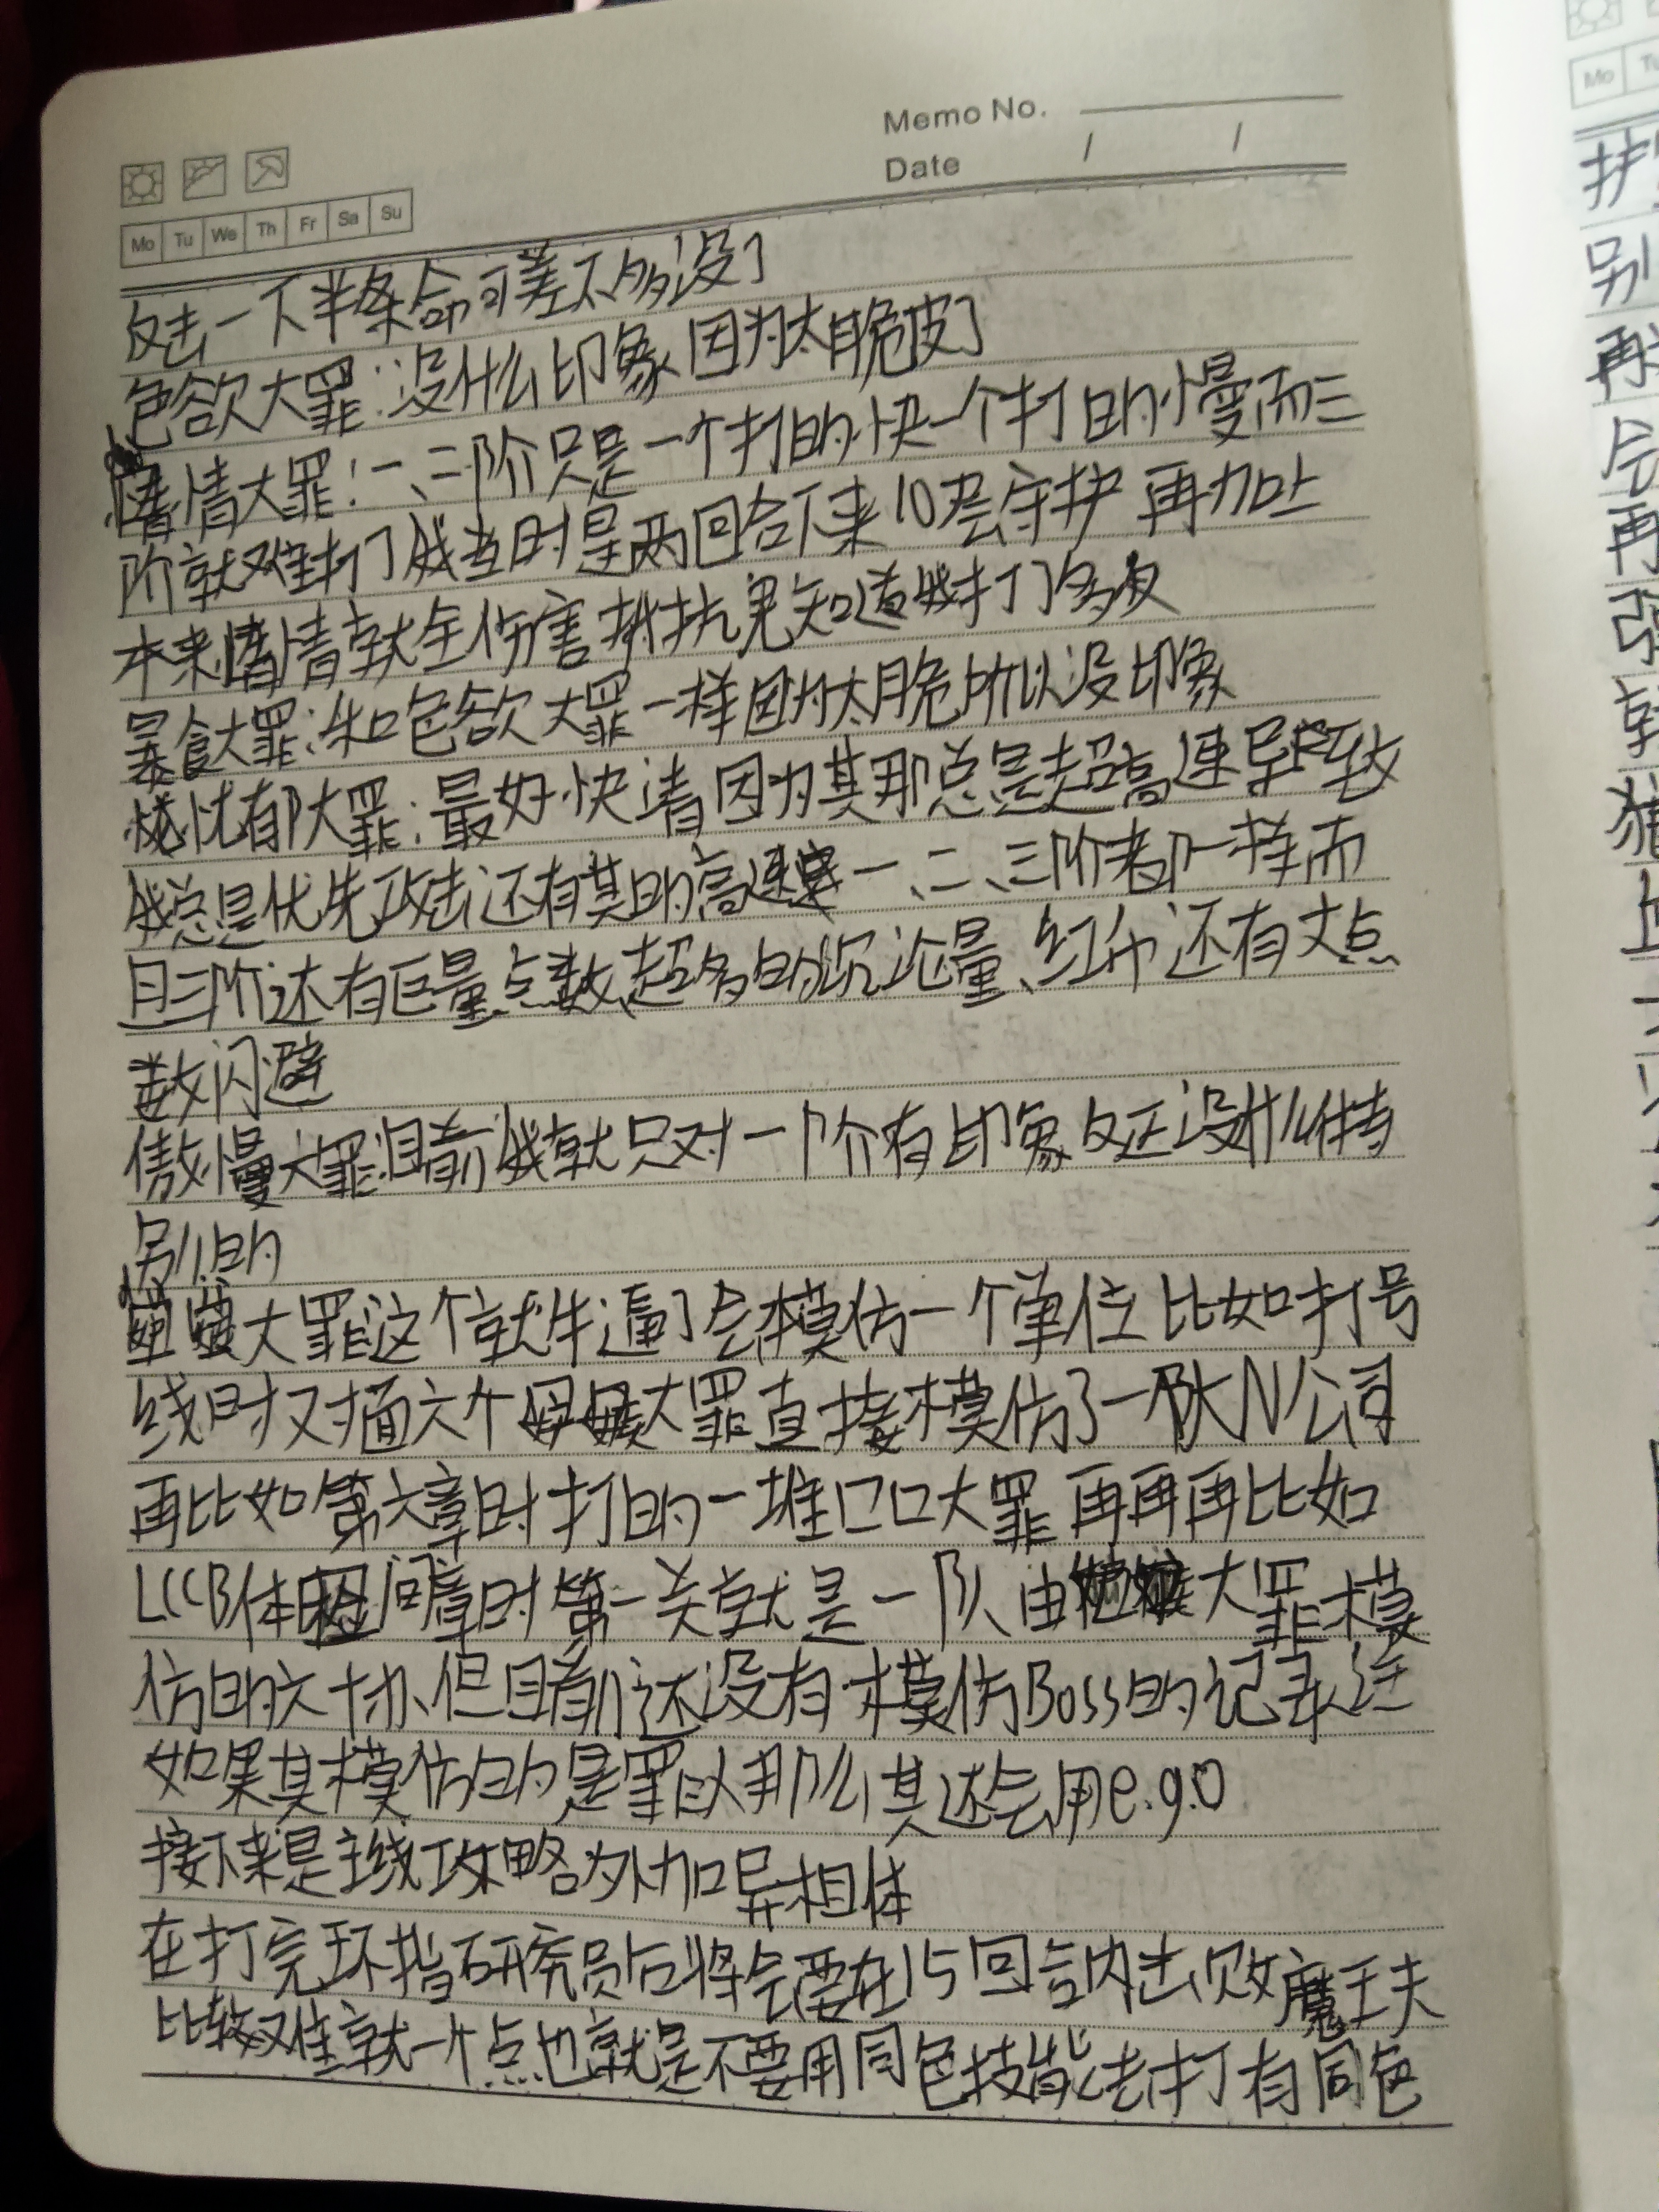 Memo No.
Date / /
Mo Tu We Th Fr Sa Su
反击一下半条命可差不多没了
色欲大罪:没什么印象因为太脆皮了
情大罪:一、二阶只是一个打的快一个打的慢而三
阶就难打了我当时是两回合下来10层守护 再加上
本来情就全伤害抵抗鬼知道我打了多久
暴食大罪:和色欲大罪一样因为太脆所以没印象
忧郁大罪:最好快清因为其那总是超高速导致
我总是优先攻击还有其的高速 一、二、三阶都一样而
且三阶还有巨量点数、超多的沉沦量、红币还有大点
数闪避
傲慢大罪:目前我就只对一阶有印象反正没什么特
别的
大罪这个就牛逼了会模仿一个单位 比如打号
线时对面六个大罪直接模仿了一队N公司
再比如第六章时打的一堆口口大罪 再再再比如
LCCB体间章时第一关就是一队由大罪模
仿的六协、但目前还没有模仿Boss的记录 注
如果其模仿的是罪人那么其还会用e.g.o
接下来是主线攻略外加异想体
在打完环指研究员后将会要在15回合内击败魔王夫
比较难就一个点也就是不要用同色技能去打有同色
Mo Tu
护
别
再
会
再
强
就
猪
上
一